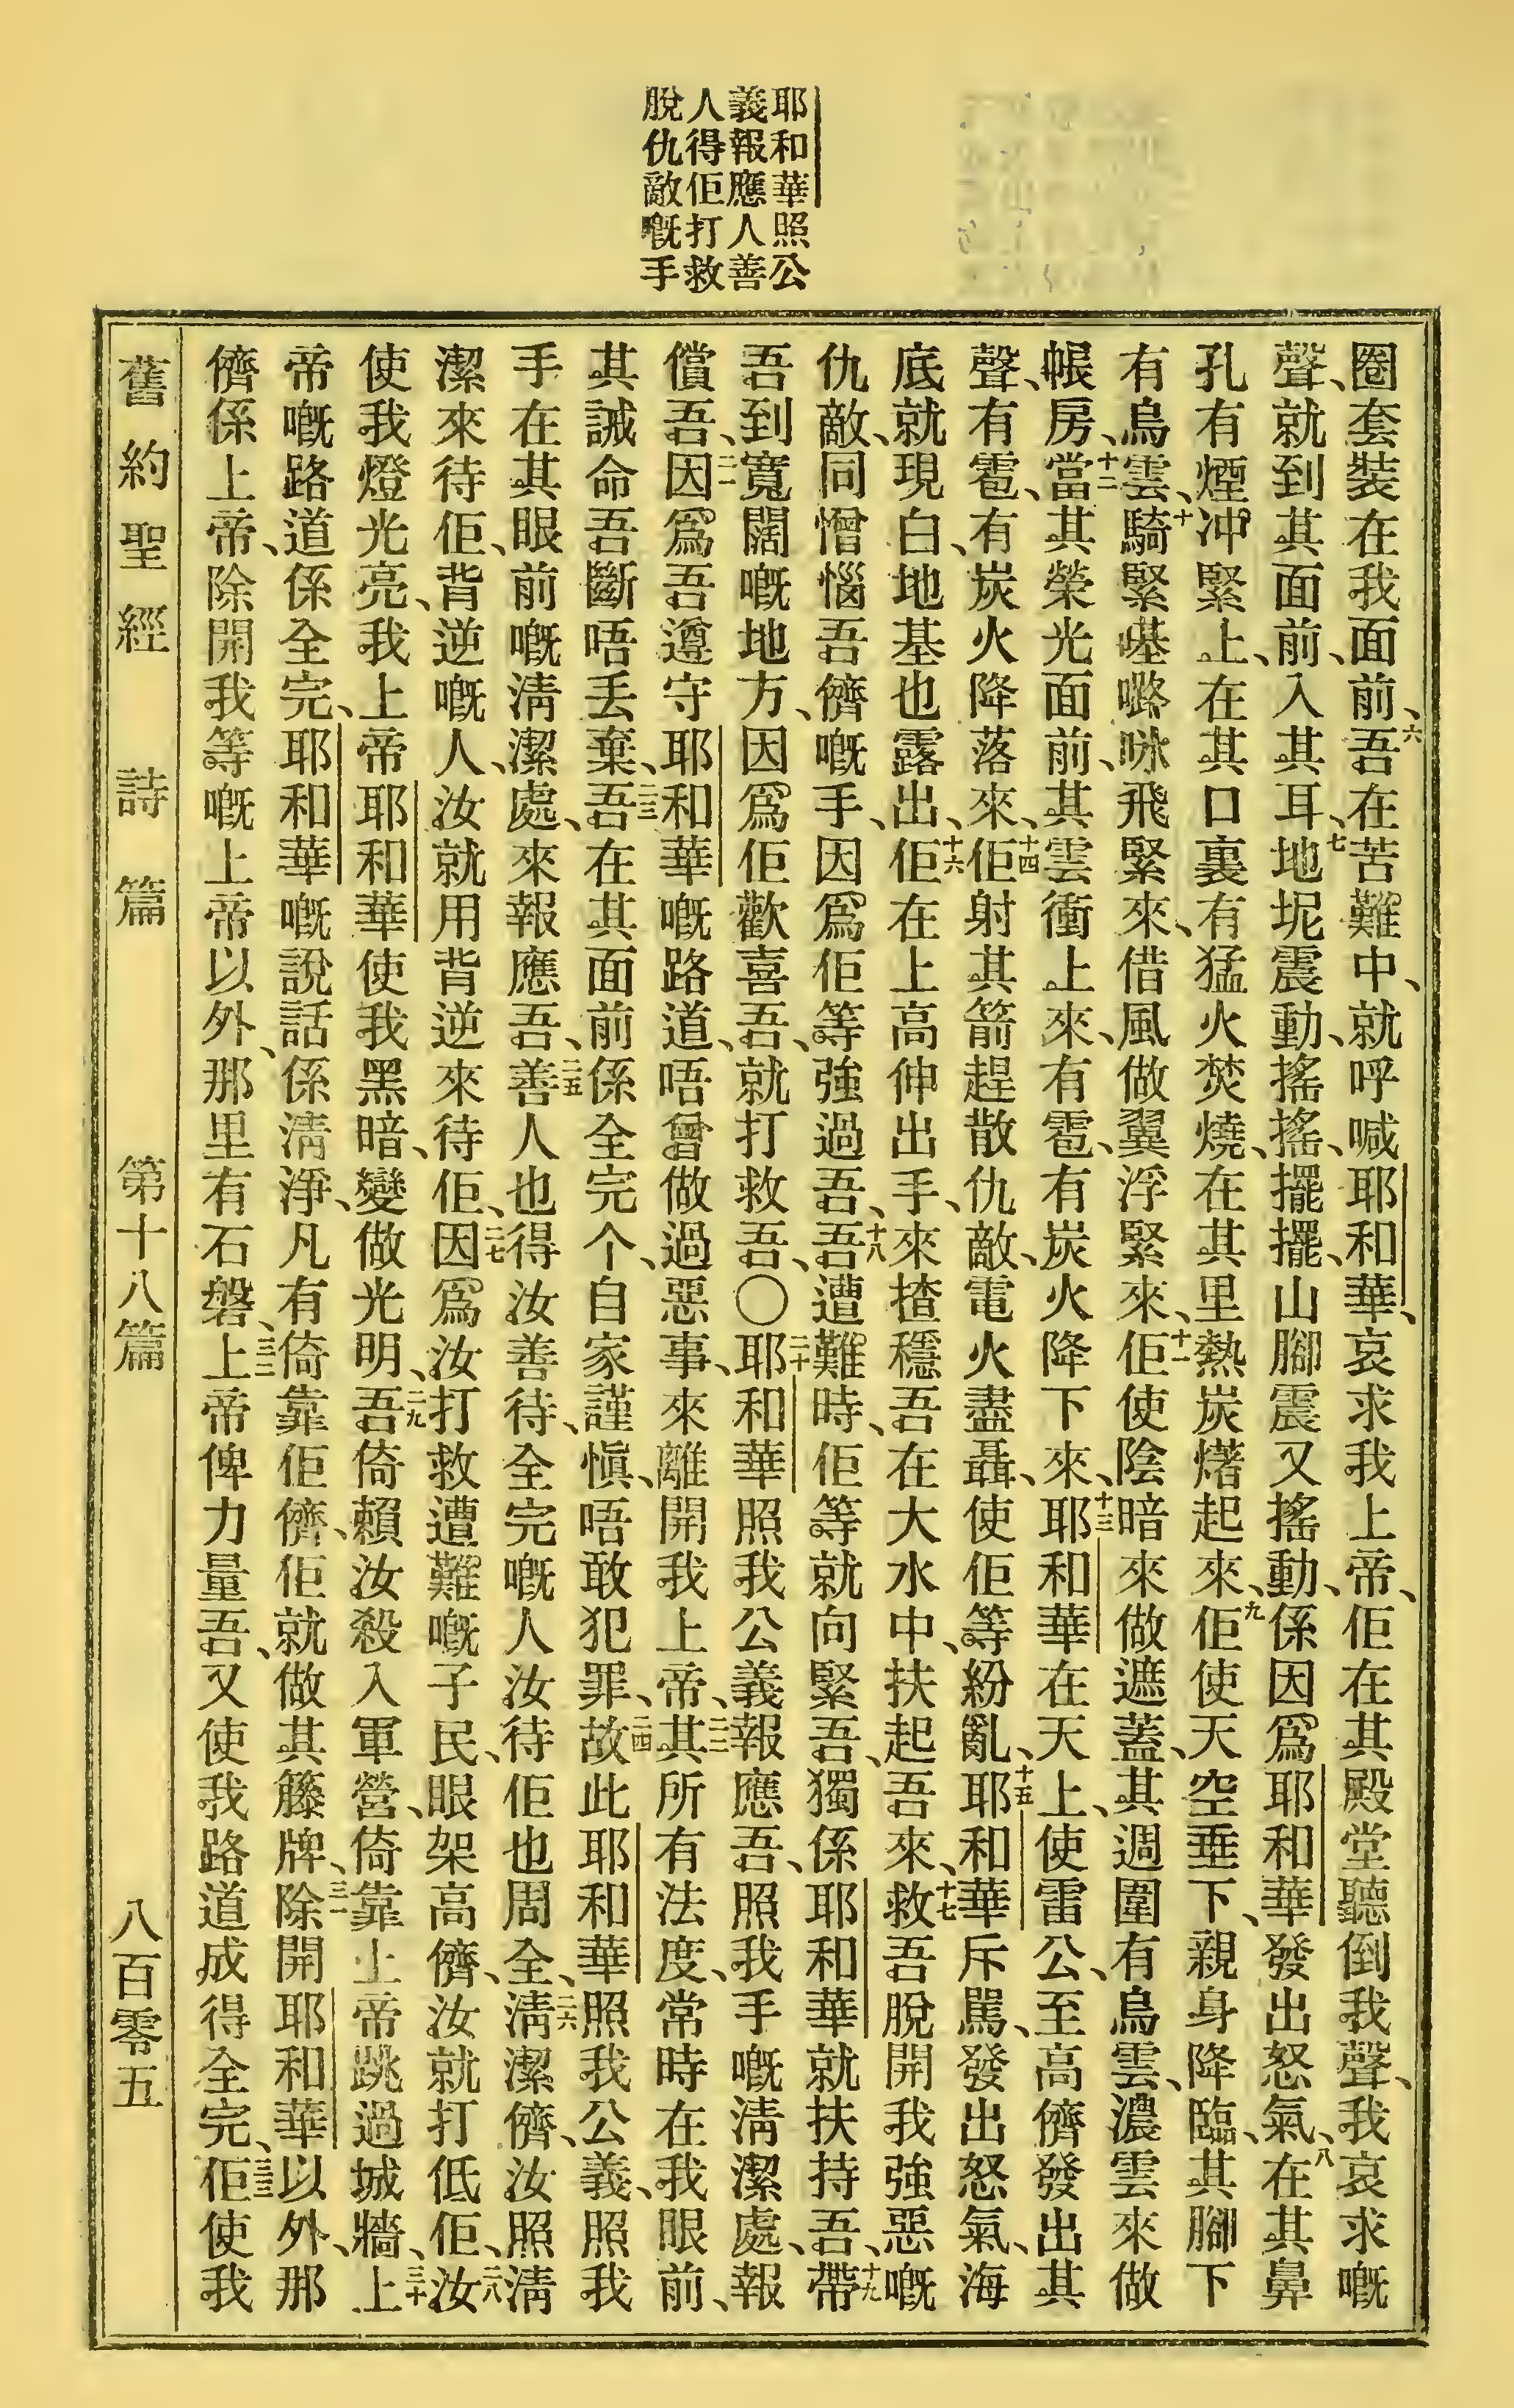 耶和華照公
義報應人善
人得佢打救
脫仇敵嘅手
圈套裝在我面前、六吾在苦難中、就呼喊耶和華、哀求我上帝、佢在其殿堂聽倒我聲、我哀求嘅
聲、就到其面前、入其耳、七地坭震動、搖搖、擺擺、山腳震又搖動、係因爲耶和華發出怒氣、八在其鼻
孔有煙冲緊上、在其口裏有猛火焚燒、在其里熱炭㷮起來、九佢使天空垂下、親身降臨、其腳下
有烏雲、十騎緊𠺝嚹㖿飛緊來、借風做翼浮緊來、十一佢使陰暗來做遮蓋、其週圍有烏雲、濃雲來做
帳房、十二當其榮光面前、其雲衝上來、有雹、有炭火降下來、十三耶和華在天上、使雷公、至高儕發出其
聲、有雹、有炭火降落來、十四佢射其箭趕散仇敵、電火盡聶、使佢等紛亂、十五耶和華斥罵、發出怒氣、海
底就現白、地基也露出、十六佢在上高伸出手、來揸穩吾在大水中、扶起吾來、十七救吾脫開我強惡嘅
仇敵、同憎惱吾儕嘅手、因爲佢等強過吾、十八吾遭難時、佢等就向緊吾、獨係耶和華就扶持吾、十九帶
吾到寬闊嘅地方、因爲佢歡喜吾、就打救吾、〇二十耶和華照我公義報應吾、照我手嘅清潔處、報
償吾、二一因爲吾遵守耶和華嘅路道、唔曾做過惡事、來離開我上帝、二二其所有法度、常時在我眼前、
其誡命吾斷唔丢棄、二三吾在其面前係全完个、自家謹愼、唔敢犯罪、二四故此耶和華照我公義、照我
手在其眼前嘅清潔處、來報應吾、二五善人也得汝善待、全完嘅人汝待佢也周全、二六清潔儕、汝照清
潔來待佢、背逆嘅人、汝就用背逆來待佢、二七因爲汝打救遭難嘅子民、眼架高儕、汝就打低佢、二八汝
使我燈光亮、我上帝耶和華使我黑暗、變做光明、二九吾倚賴汝殺入軍營、倚靠上帝跳過城牆、三十上
帝嘅路道係全完、耶和華嘅說話係清淨、凡有倚靠佢儕、佢就做其籐牌、三一除開耶和華以外、那
儕係上帝、除開我等嘅上帝以外、那里有石磐、三二上帝俾力量吾、又使我路道成得全完、三三佢使我
舊約聖經　詩篇　第十八篇　八百零五